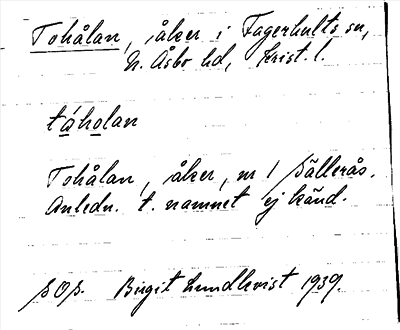 Tohålan, åker i Fagerhults sn,
N. Åsbo hd, Krist. l.
tåholan
Tohålan, åker, nr 1 Sällerås.
Anledn. t. namnet ej känd.
Birgit Lundkvist 1939.